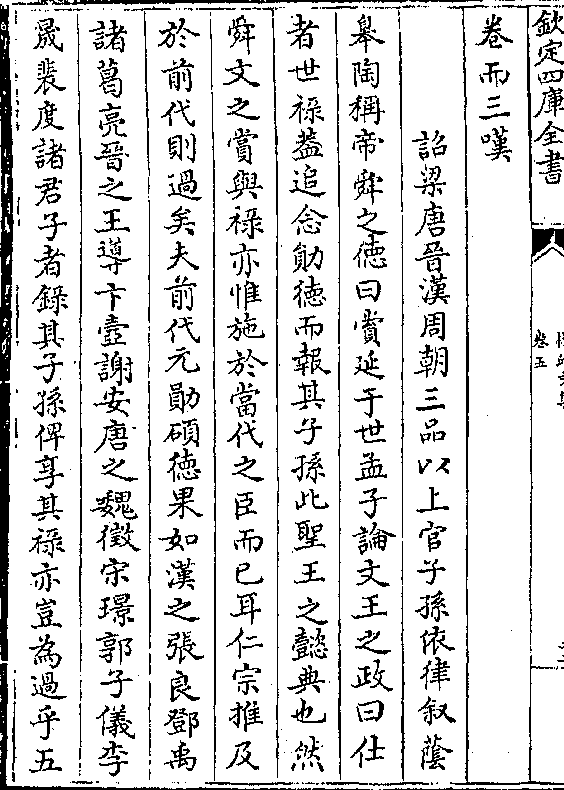 欽定四庫全書
卷五
卷而三嘆
詔梁唐晉漢周朝三品以上官子孫依律叙蔭
臯陶稱帝舜之徳曰賞延于世孟子論文王之政曰仕
者世禄葢追念勛徳而報其子孫此聖王之懿典也然
舜文之賞與禄亦惟施於當代之臣而已耳仁宗推及
於前代則過矣夫前代元勛碩徳果如漢之張良鄧禹
諸葛亮晉之王導卞壼謝安唐之魏徵宋璟郭子儀李
晟裴度諸君子者錄其子孫俾享其禄亦豈為過乎五